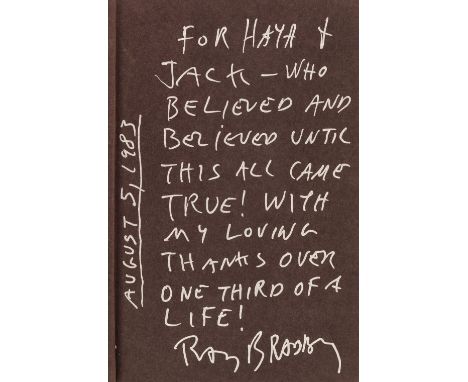 FOR HAYA &
JACK — WHO
BELIEVED AND
BELIEVED UNTIL
THIS ALL CAME
TRUE! WITH
MY LOVING
THANKS OVER
ONE THIRD OF A
LIFE!
RAY BRADBURY
AUGUST 5, 1983